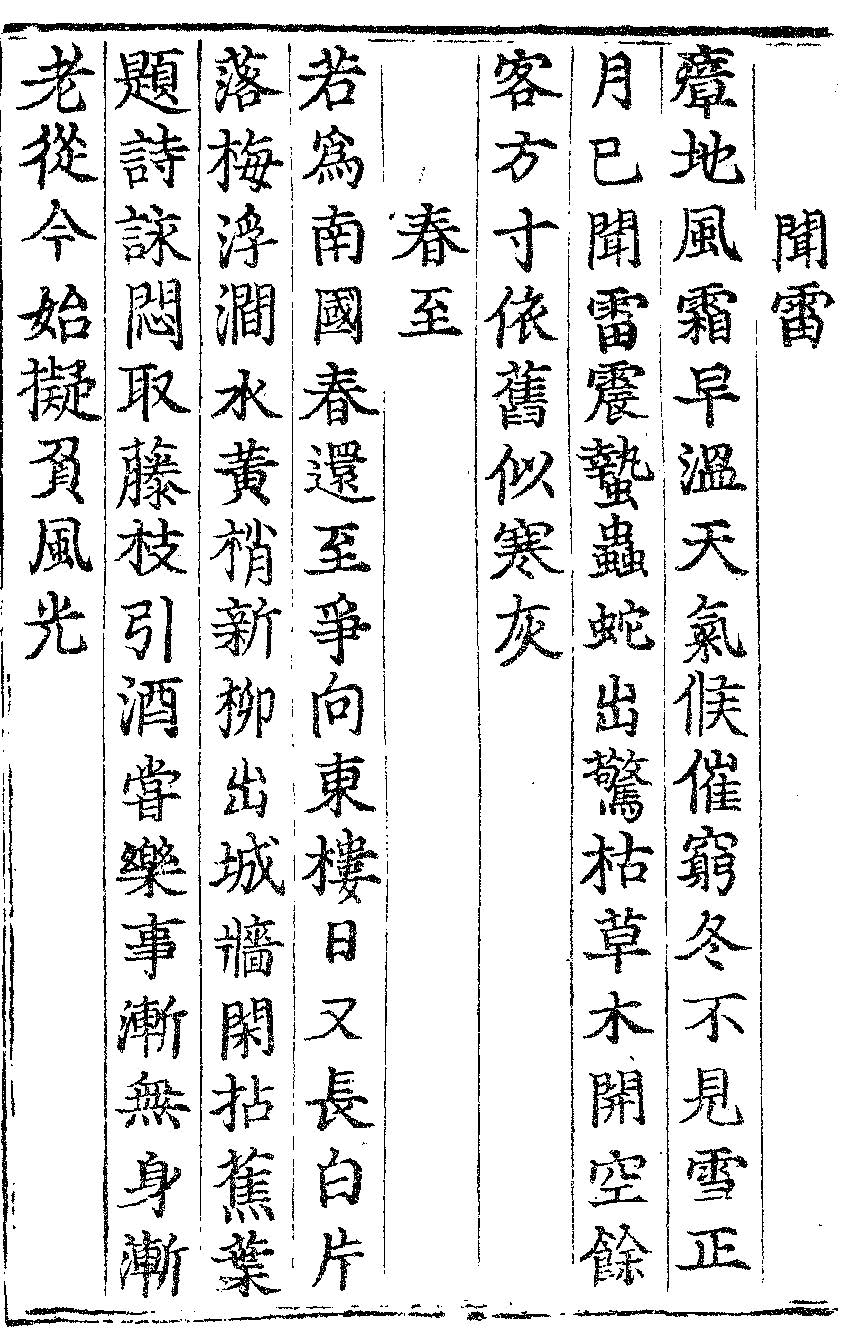 聞雷
瘴地風霜早溫天氣候催窮冬不見雪正
月已聞雷震蟄蟲蛇出驚枯草木開空餘
客方寸依舊似寒灰
春至
若爲南國春還至爭向東樓日又長白片
落梅浮澗水黃梢新柳出城牆閑拈蕉葉
題詩詠悶取藤枝引酒甞樂事漸無身漸
老從今始擬負風光